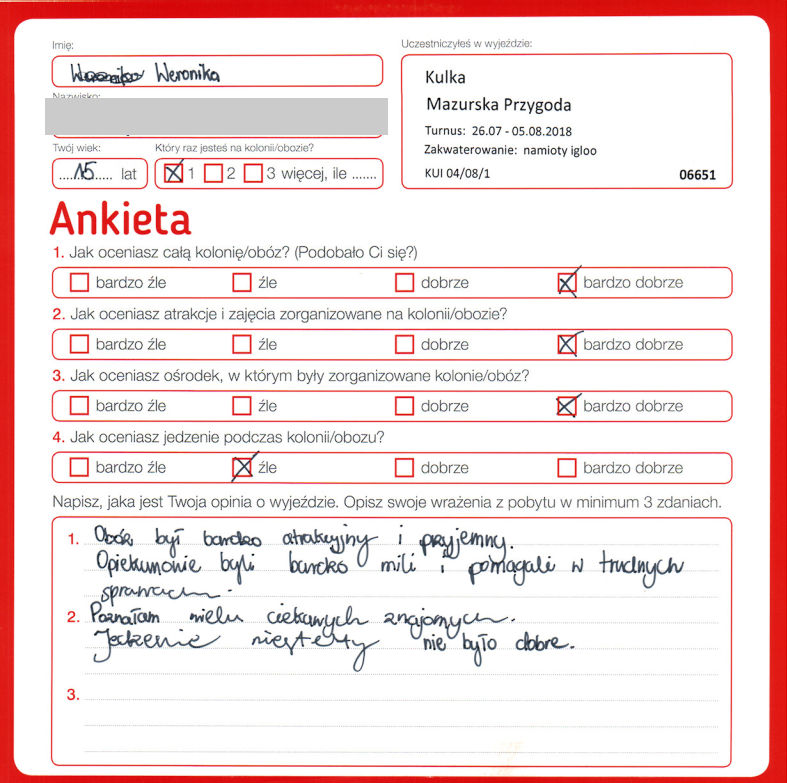 Imię:
Uczestniczyłeś w wyjeździe:
Weronika Weronika
Kulka
Mazurska Przygoda
Nazwisko:
Turnus: 26.07 - 05.08.2018
Zakwaterowanie: namioty igloo
KUI 04/08/1 06651
Twój wiek: Który raz jesteś na kolonii/obozie?
....15...... lat 1 2 3 więcej, ile .......
Ankieta
1. Jak oceniasz całą kolonię/obóz? (Podobało Ci się?)
bardzo źle źle dobrze bardzo dobrze
2. Jak oceniasz atrakcje i zajęcia zorganizowane na kolonii/obozie?
bardzo źle źle dobrze bardzo dobrze
3. Jak oceniasz ośrodek, w którym były zorganizowane kolonie/obóz?
bardzo źle źle dobrze bardzo dobrze
4. Jak oceniasz jedzenie podczas kolonii/obozu?
bardzo źle źle dobrze bardzo dobrze
Napisz, jaka jest Twoja opinia o wyjeździe. Opisz swoje wrażenia z pobytu w minimum 3 zdaniach.
1. Obóz był bardzo atrakcyjny i przyjemny.
Opiekunowie byli bardzo mili i pomagali w trudnych
sprawach.
2. Poznałam wielu ciekawych znajomych.
Jedzenie niestety nie było dobre.
3.